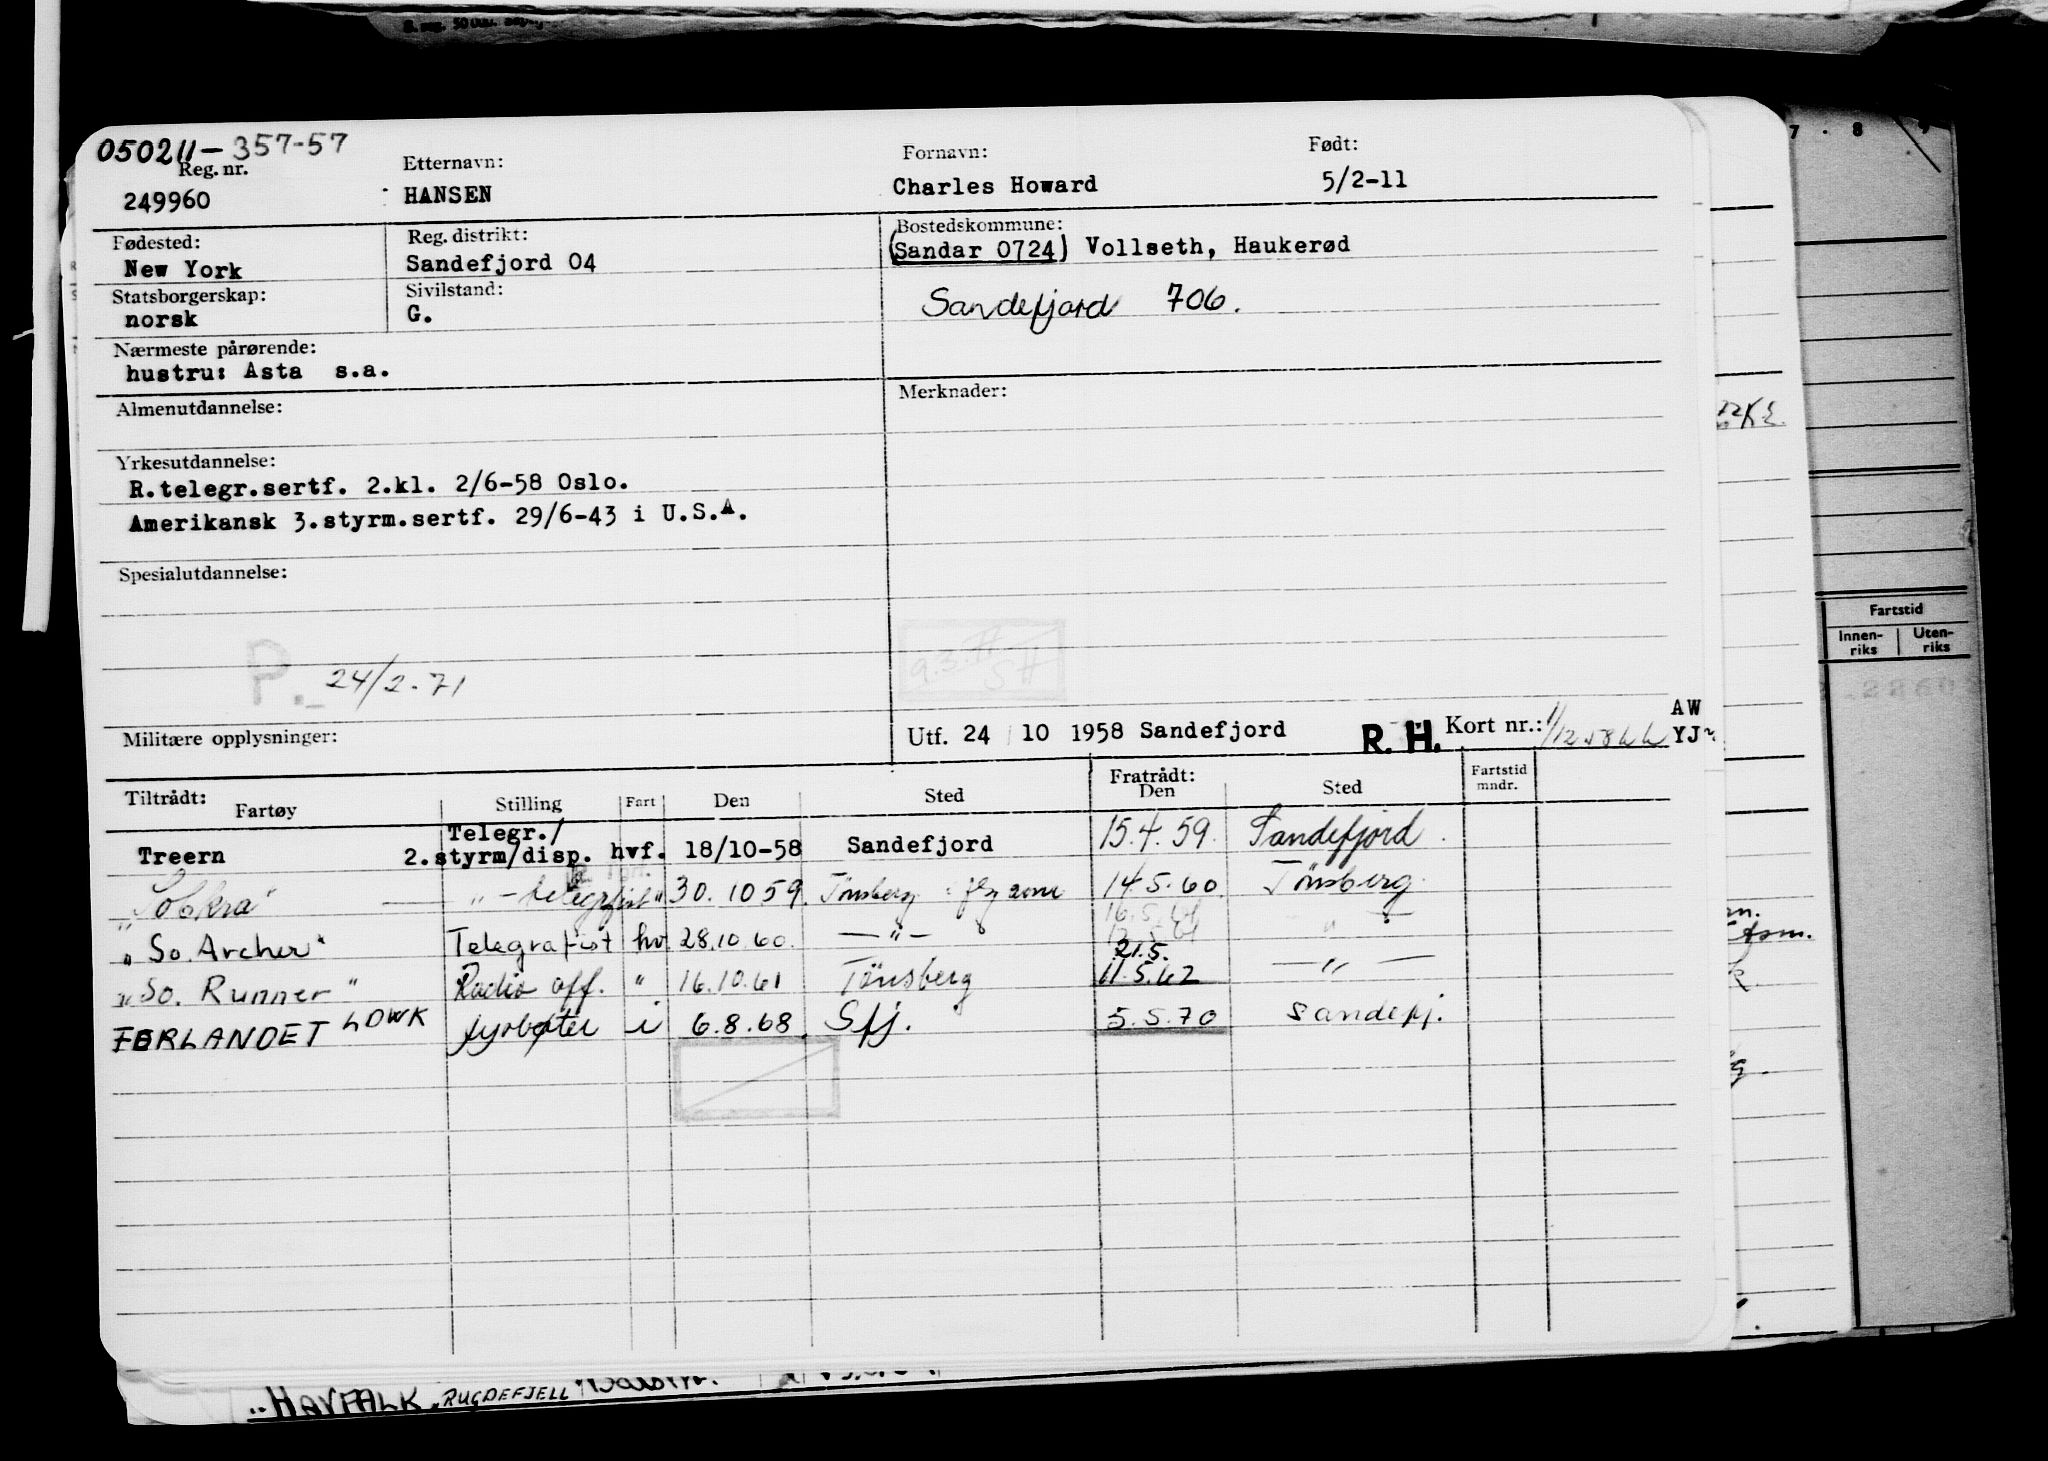 050211-357-57
Reg. nr. Etternavn: Fornavn: Født:
249960 HANSEN Charles Howard 5/2-11
Fødested: Reg. distrikt: Bostedskommune:
New York Sandefjord 04 (Sandar 0724) Vollseth, Haukerød
Statsborgerskap: Sivilstand:
norsk G. Sandefjord 706.
Nærmeste pårørende:
hustru: Asta s.a.
Almenutdannelse: Merknader:
Yrkesutdannelse:
R.telegr.sertf. 2.kl. 2/6-58 Oslo.
Amerikansk 3.styrm.sertf. 29/6-43 i U.S.A.
Spesialutdannelse:
P. 24/2.71
Militære opplysninger: Utf. 24 10 1958 Sandefjord R. H. Kort nr.: AW
YJ
Tiltrådt: Fratrådt: Fartstid
Fartøy Stilling Fart Den Sted Den Sted mndr.
Treern Telegr./
2.styrm/disp. hvf. 18/10-58 Sandefjord 15.4.59. Sandefjord.
"Sobkra" " - telegrfist " 30.10 59. Tönsberg 14.5.60 Tönsberg
"So. Archer" Telegrafist hv 28.10.60. — " — " —
21.5.
"So. Runner" Radio off. " 16.10.61 Tönsberg 11.5.62 — " —
FORLANDET LDWK fyrbøter i 6.8.68. Sfj. 5.5.70 Sandefj.
Fartstid
Innen-riks Uten-riks
HAVFALK RUGDEFJELL